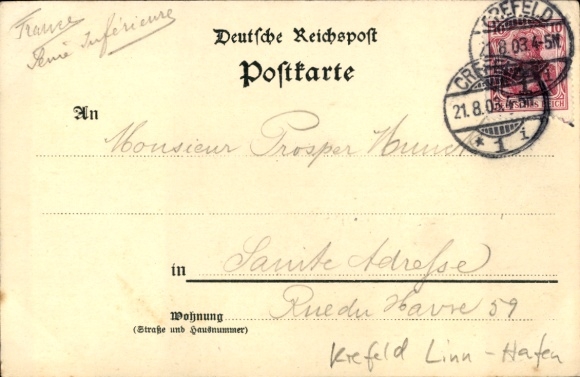 France
Seine Inférieure
Deutsche Reichspost
Postkarte
CREFELD
21.8.03.4-5N
CREFELD
21.8.03.4-5N
* 1 i
10 10
REICH
An Monsieur Prosper
in Sainte Adresse
Wohnung Rue du Havre 59
(Straße und Hausnummer)
Krefeld Linn - Hafen